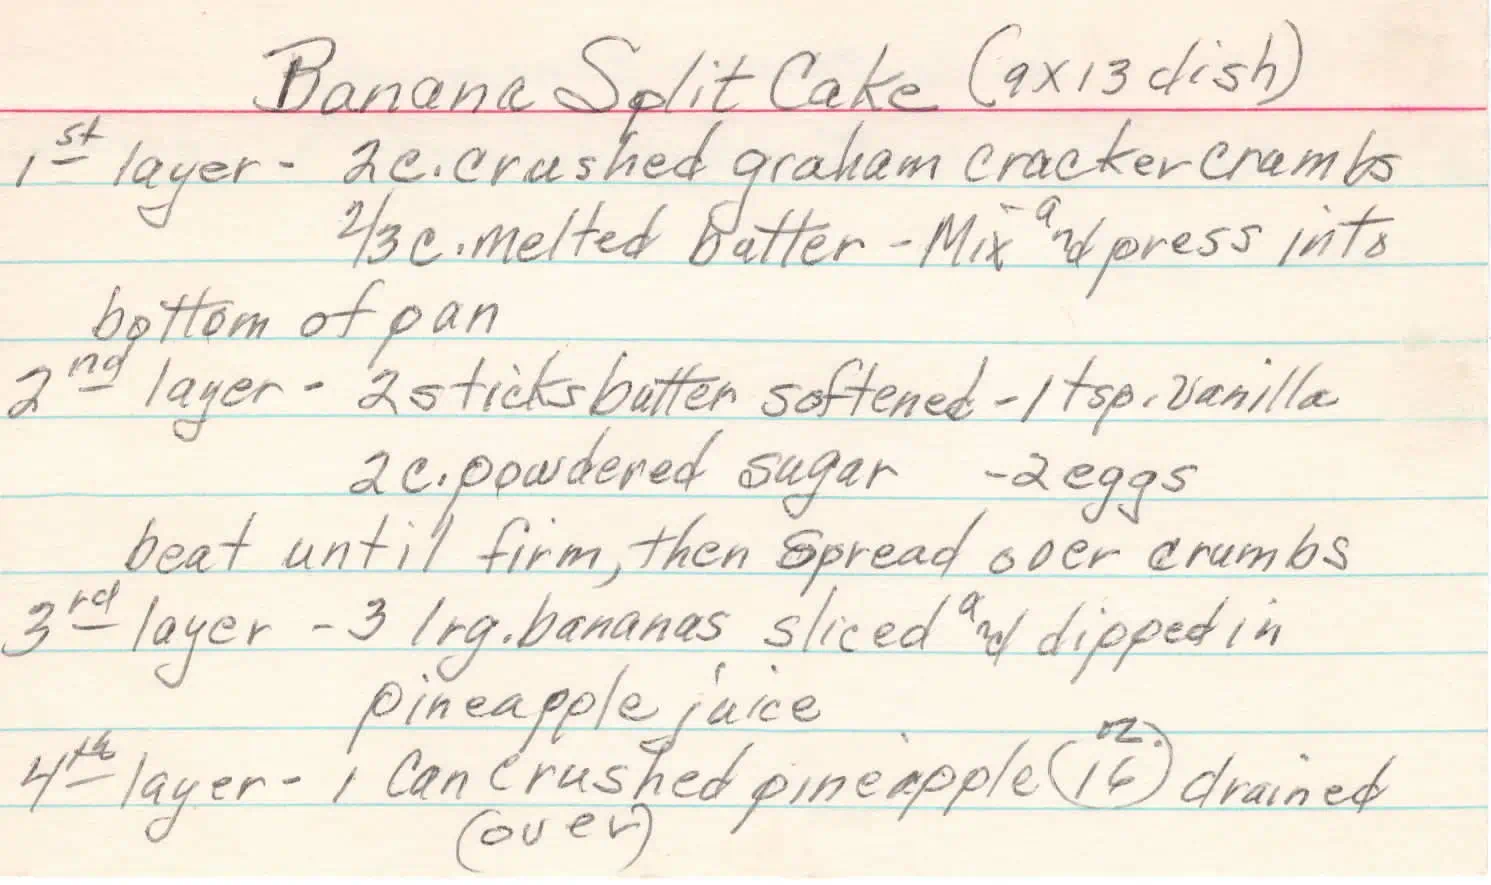 Banana Split Cake (9x13 dish)
1st layer - 2c. crushed graham cracker crumbs
2/3c. melted butter - Mix and press into
bottom of pan
2nd layer - 2 sticks butter softened - 1 tsp. vanilla
2c. powdered sugar - 2 eggs
beat until firm, then spread over crumbs
3rd layer - 3 lrg. bananas sliced and dipped in
pineapple juice
4th layer - 1 can crushed pineapple (16 oz.) drained
(over)